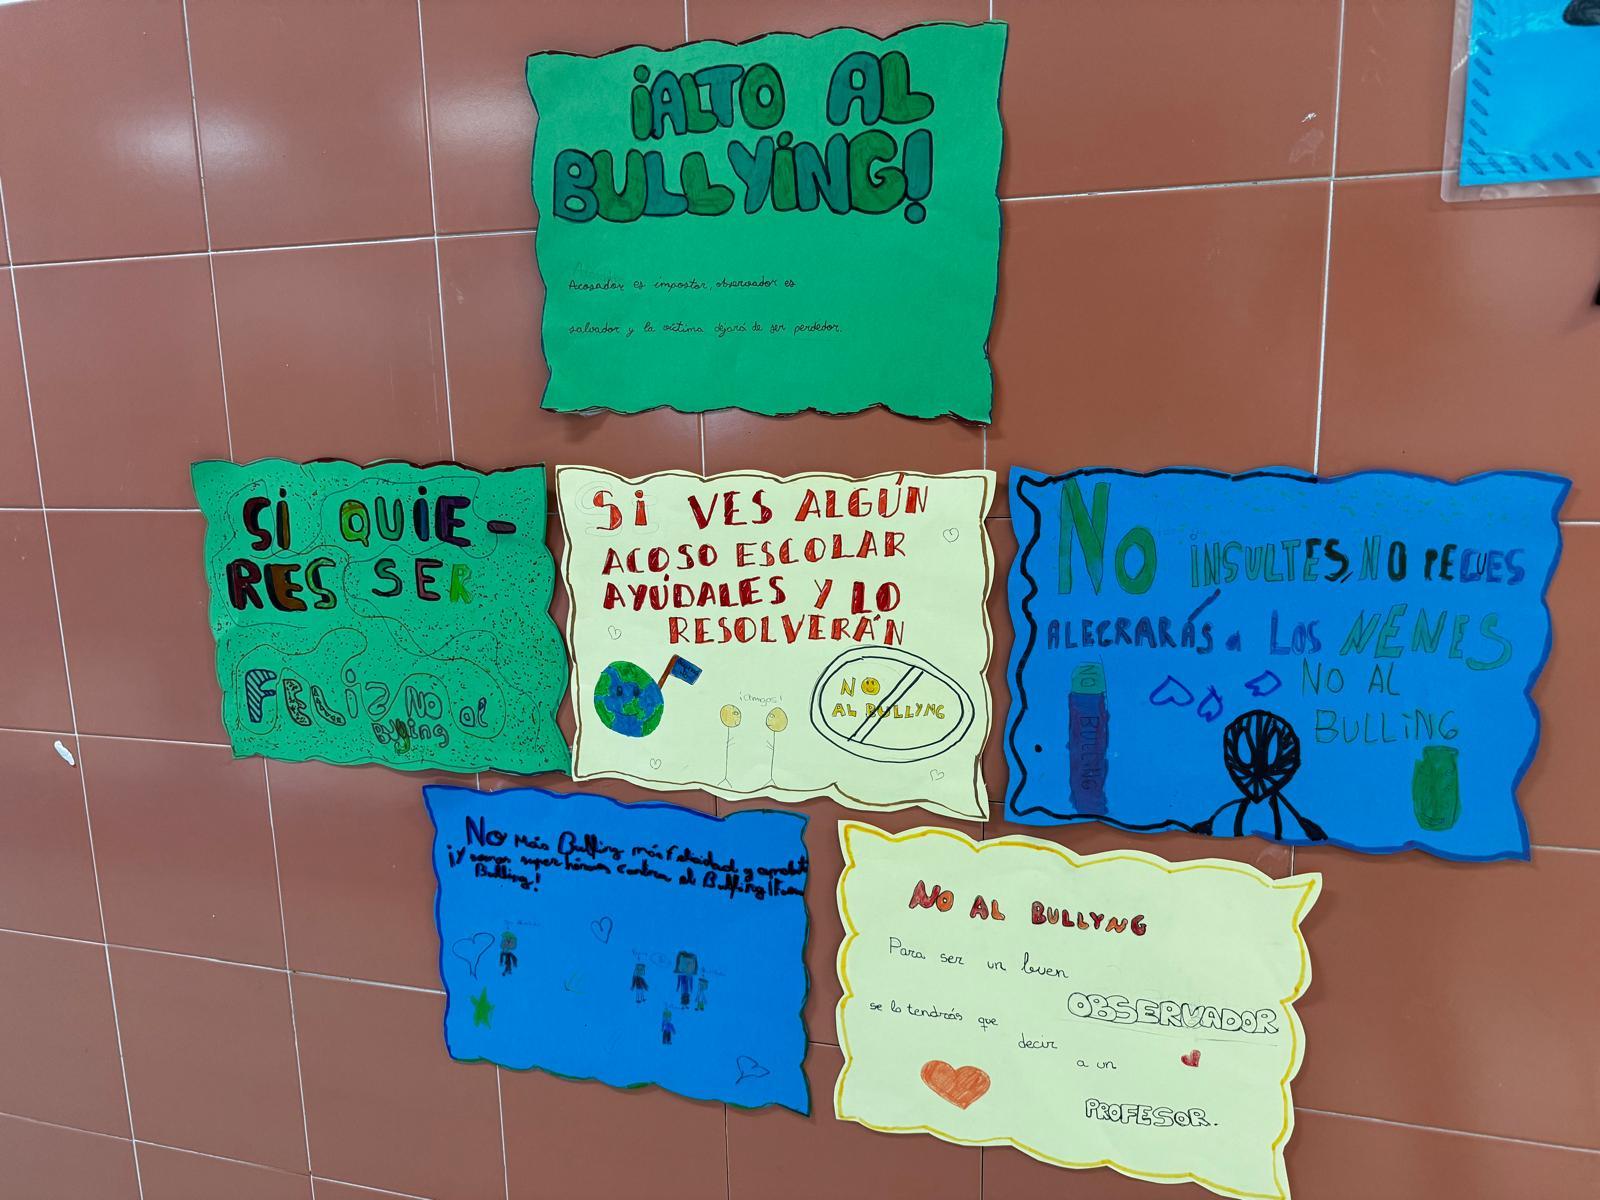 ¡ALTO AL
BULLYING!
Acosador es impostor, observador es
salvador y la víctima dejará de ser perdedor.
SI QUIE-
RES SER
FELIZ NO al
Bullying
SI VES ALGÚN
ACOSO ESCOLAR
AYÚDALES Y LO
RESOLVERÁN
¡amigos!
NO
AL BULLYNG
NO INSULTES, NO PEGUES
ALEGRARÁS a LOS NENES
NO AL
BULLING
NO
BULLING
No Más Bullying más Felicidad y
¡Y somos super héroes contra el Bullying!
Bulling!
NO AL BULLYNG
Para ser un buen
OBSERVADOR
se lo tendrás que
decir
a un
PROFESOR.